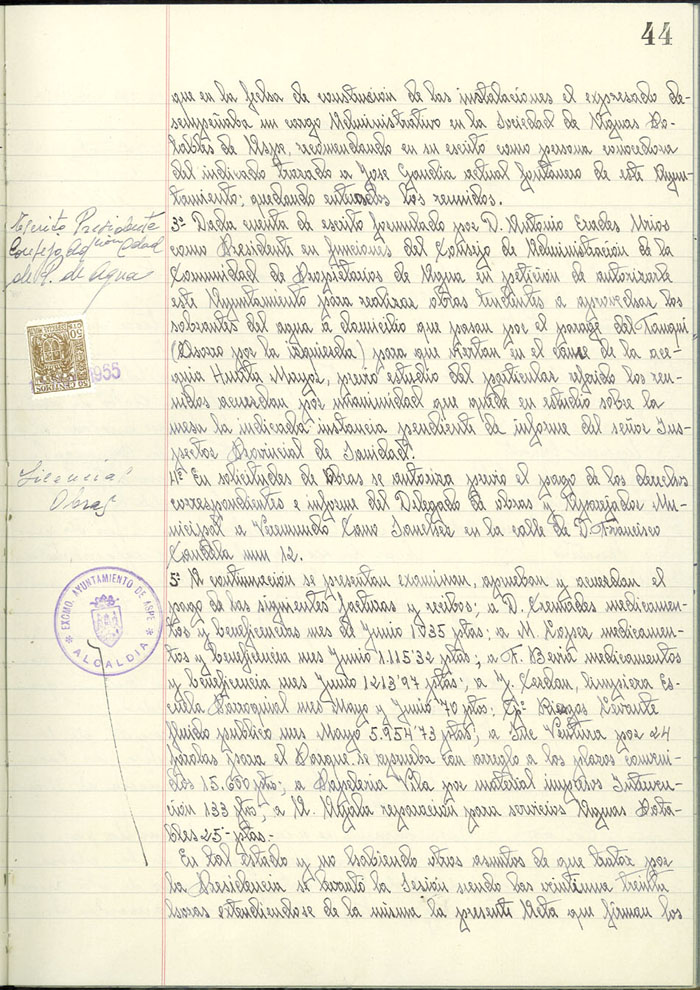 44
que en la fecha de construcion de las instalaciones el expresado de-
sempeñaba un cargo Administrativo en la Sociedad de Aguas Po-
tables de Aspe, recomendando en su escrito como persona conocedora
del indicado trazado a Jose Gandia actual fontanero de este Ayun-
tamiento; quedando enterados los reunidos.
Escrito Presidente
Consejo Adcion Cdad
de P. de Agua
3º Dada cuenta de escrito formulado por D. Antonio Erades Mios
como Presidente en funciones del Consejo de Administracion de la
Comunidad de Propietarios de Agua en peticion de autorizarle
este Ayuntamiento para realizar obras tendentes a aprovechar los
sobrantes del agua a domicilio que pasan por el paraje del Fanqui
(Chorro por la izquierda) para que viertan en el cauce de la ace-
quia Huerta Mayor, previo estudio del particular referido los reu-
nidos acuerdan por unanimidad que quede en estudio sobre la
mesa la indicada instancia pendiente de informe del señor Ins-
pector Provincial de Sanidad.
50 CENTIMOS
1955
Licencias
Obras
4º En solicitudes de Obras se autoriza previo el pago de los derechos
correspondientes e informe del Delegado de obras y Aparejador Mu-
nicipal a Veremundo Cano Sanchez en la calle de D. Francisco
Candela num 12.
EXCMO. AYUNTAMIENTO DE ASPE
* ALCALDIA *
5º A continuacion se presentan examinan, aprueban y acuerdan el
pago de las siguientes facturas y recibos; a D. Cremades medicamen-
tos y beneficencias mes de Junio 1.035 ptas; a M. Lopez medicamen-
tos y beneficencia mes Junio 1.115'32 ptas; a A. Beria medicamentos
y beneficencia mes Junio 1213'97 ptas; a J. Cerdan, limpieza Es-
cuela Parroquial mes Mayo y Junio 70 ptas; Cª Riegos Levante
fluido publico mes Mayo 5.954'73 ptas; a Ventura por 24
farolas para el Parque se aprueba con arreglo a los plazos conveni-
dos 15.600 ptas; a Papeleria Vila por material impreso Interven-
cion 133 ptas; a A. Mejala reparacion para servicios Aguas Pota-
bles 25 ptas.-
En tal estado y no habiendo otros asuntos de que tratar por
la Presidencia se levantó la Sesión siendo las veintiuna treinta
horas extendiendose de la misma la presente Acta que firman los